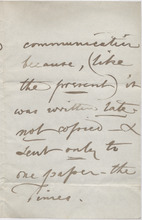 communication
because, (like
the present) it
was written late
not copied &
sent only to
one paper - the
Times.